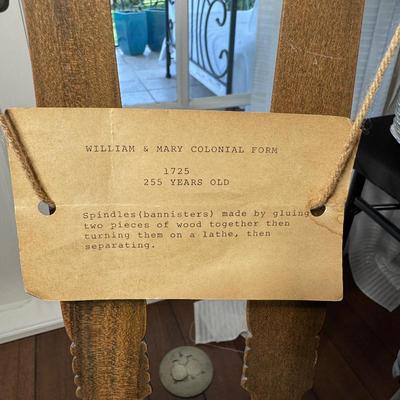 WILLIAM & MARY COLONIAL FORM
1725
255 YEARS OLD
Spindles(bannisters) made by gluing
two pieces of wood together then
turning them on a lathe, then
separating.